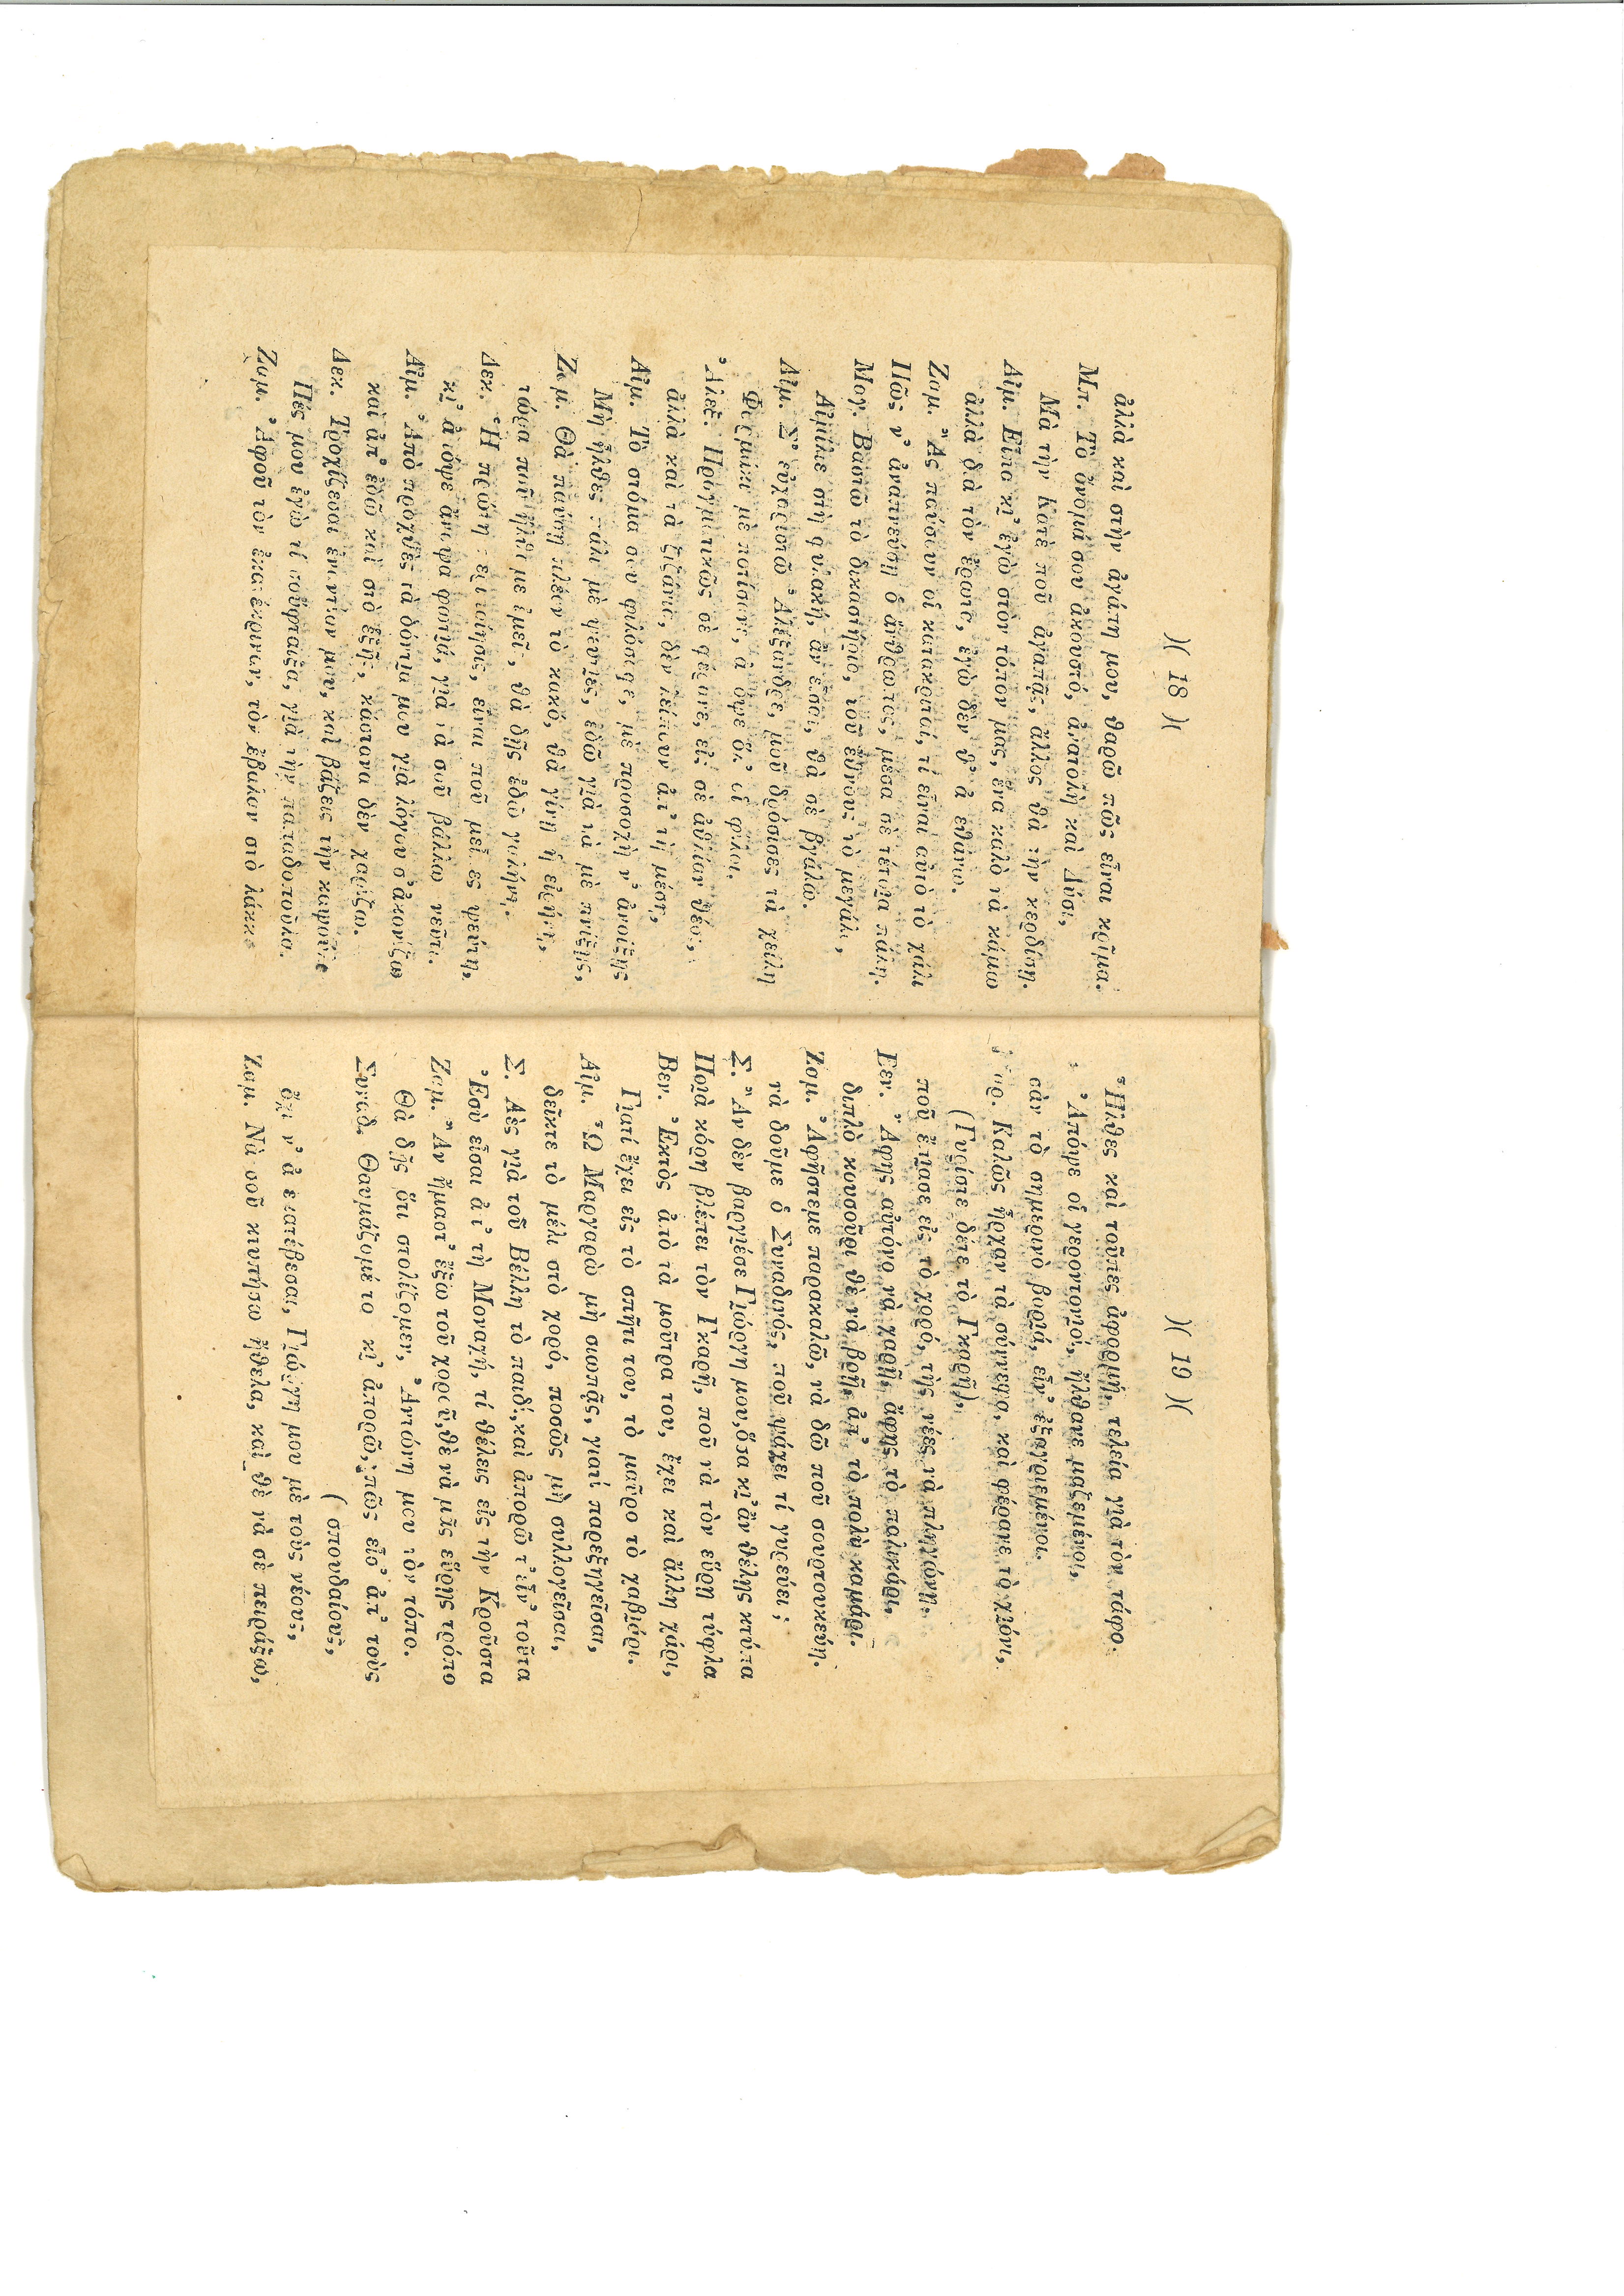 )( 18 )(
ἀλλὰ καὶ στὴν ἀγάπη μου, θαρῶ πῶς εἶναι κρῖμα.
Μπ. Τὸ ὄνομά σου ἀκουστό, ἀνατολὴ καὶ Δύσι,
Μὰ τὴν Κατὲ ποῦ ἀγαπᾷς, ἄλλος θὰ τὴν κερδίση.
Αἰμ. Εἶπα κι᾽ ἐγὼ στὸν τόπον μας, ἕνα καλὸ νὰ κάμω
ἀλλὰ δὰ τὸν ἔρωτα, ἐγὼ δὲν θ᾽ ἀ
Ζαμ. Ἂς παύσουν οἱ κατακρυταί, τί εἶναι αὐτὸ τὸ χάλι
Πῶς ν᾽ ἀναπνεύση ὁ ἄνθρωπος, μέσα σὲ τέτοια πάλη.
Μαγ. Βαστῶ τὸ δικαστήριο, τοῦ ἔθνους τὸ μεγάλο,
Αἰμίλιε στὴ φυλακή, ἂν εἶσαι, θὰ σὲ βγάλω.
Αἰμ. Σ᾽ εὐχαριστῶ Ἀλέξανδρε, μοῦ δρόσισες τὰ χείλη
Φαρμάκι μὲ ποτίσανε, ἀπόψε ὅλ᾽ οἱ φίλοι.
Ἀλεξ. Πραγματικῶς σὲ φέρανε, εἰς σὲ ἀθλίαν θέσι,
ἀλλὰ καὶ τὰ ζιζάνια, δὲν λείπουν ἀπ᾽ τὴ μέση,
Αἰμ. Τὸ στόμα σου φιλόσοφε, μὲ προσοχὴ ν᾽ ἀνοίξῃς
Μὴ ἦλθες πάλι μὲ ψευτιές, ἐδῶ γιὰ νὰ μὲ πνίξῃς,
Ζαμ. Θὰ παύση πλέον τὸ κακό, θὰ γίνη ἡ εἰρήνη,
τώρα ποῦ ἤλθαμε ἐμεῖς, θὰ δῇς ἐδῶ γαλήνη.
Δεκ. Ἡ πρώτη περιποίησις, εἶναι ποῦ μεῖπες ψεύτη,
κι᾽ ἀπόψε ἄναψα φωτιά, γιὰ νὰ σοῦ βάλλω νεῦτι.
Αἰμ. Ἀπὸ προχθὲς τὰ δόντια μου γιὰ λόγου σ᾽ ἀκονίζω
καὶ ἀπ᾽ ἐδῶ καὶ στὸ ἑξῆς, κάστανα δὲν χαρίζω.
Δεκ. Τροχίζεσαι ἐναντίον μου, καὶ βάζεις τὴν καψοῦλα
Πές μου ἐγὼ τί σοὔφταιξα, γιὰ τὴν παπαδοποῦλα.
Ζαμ. Ἀφοῦ τὸν ἐκατέκριναν, τὸν ἔβαλαν στὸ λάκκο
)( 19 )(
Ἦλθες καὶ τοῦπες ἀφορμή, τελεία γιὰ τὸν τάφο.
Ἀπόψε οἱ γεροντονιοί, ἤλθανε μαζεμένοι,
σὰν τὸ σημερινὸ βοριά, εἶν᾽ ἐξαγριεμένοι.
Καλῶς ἦρχαν τὰ σύννεφα, καὶ φέρανε τὸ χιόνι,
(Γυρίστε δέτε τὸ Γκαρῆ),
ποῦ ἔπιασε εἰς τὸ χορό, τῇς νέες νὰ πληγώνη.
Βεν. Ἄφης αὐτόνο νὰ χαρῇ, ἄφης τὸ παλικάρι,
διπλὸ κουσοῦρι θὲ νὰ βρῇ, ἀπ᾽ τὸ πολὺ καμάρι.
Ζαμ. Ἀφῆστεμε παρακαλῶ, νὰ δῶ ποῦ σουρτουκεύη.
νὰ δοῦμε ὁ Συναδινός, ποῦ ψάχει τί γυρεύει;
Σ. Ἂν δὲν βαργιέσε Γιώργη μου, ὅσα κι᾽ ἂν θέλῃς κτύπα
Ποιὰ κόρη βλέπει τὸν Γκαρῆ, ποῦ νὰ τὸν εὕρη τύφλα
Βεν. Ἐκτὸς ἀπὸ τὰ μοῦτρα του, ἔχει καὶ ἄλλη χάρι,
Γιατί ἔχει εἰς τὸ σπῆτι του, τὸ μαῦρο τὸ χαβιάρι.
Αἰμ. Ὦ Μαργαρὼ μὴ σιωπᾷς, γιατί παρεξηγεῖσαι,
δεῖκτε τὸ μέλι στὸ χορό, ποσῶς μὴ συλλογεῖσαι,
Σ. Λὲς γιὰ τοῦ Βέλλη τὸ παιδί, καὶ ἀπορῶ τ᾽ εἶν᾽ τοῦτα
Ἐσὺ εἶσαι ἀπ᾽ τὴ Μοναχή, τί θέλεις εἰς τὴν Κροῦστα
Ζαμ. Ἂν ἤμαστ᾽ ἔξω τοῦ χοροῦ, θὲ νὰ μᾶς εὕρῃς τρόπο
Θὰ δῇς ὅτι στολίζομεν, Ἀντώνη μου τὸν τόπο.
Συναδ. Θαυμάζομέ το κι᾽ ἀπορῶ, πῶς εἶσ᾽ ἀπ᾽ τοὺς
( σπουδαίους,
ὄχι ν᾽ ἀ Γιώργη μου μὲ τοὺς νέους,
Ζαμ. Νὰ σοῦ κτυπήσω ἤθελα, καὶ θὲ νὰ σὲ πειράξω,